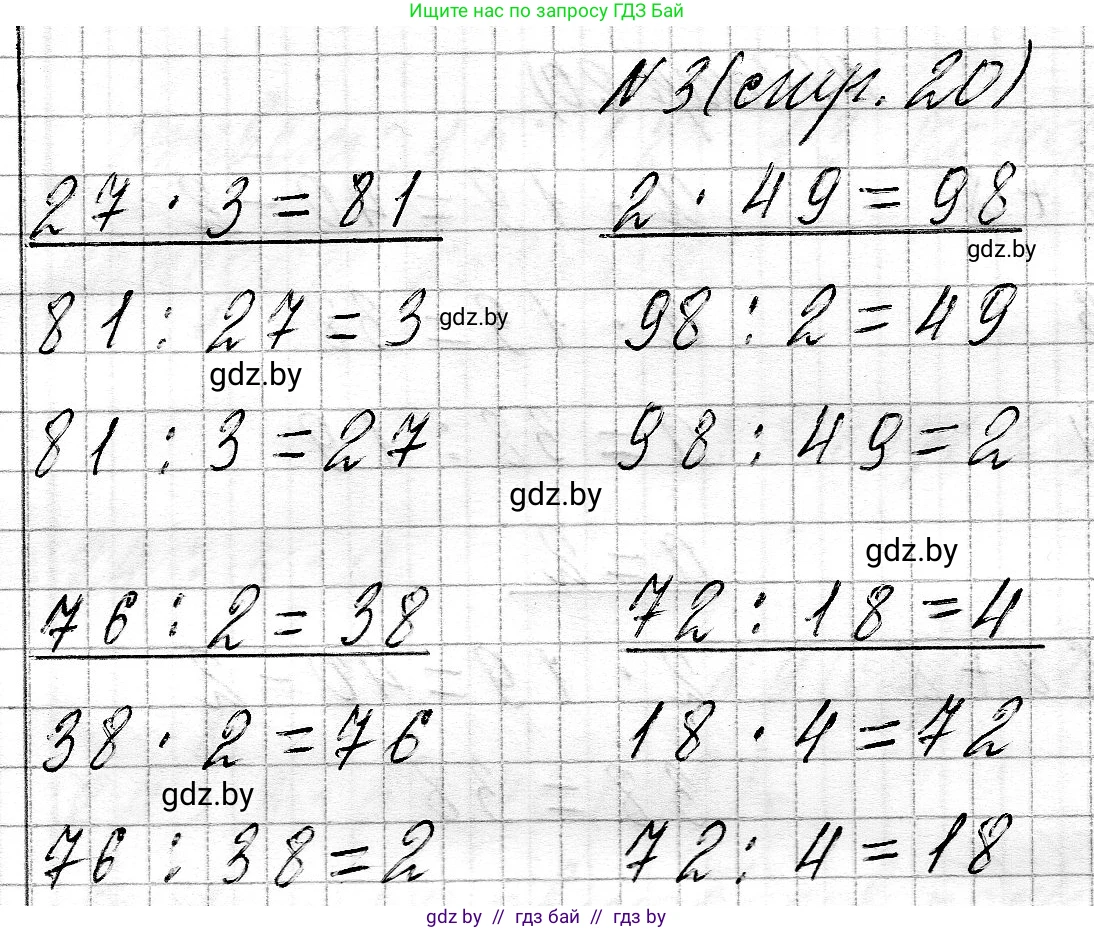 Ищите нас по запросу ГДЗ Бай
№3 (стр. 20)
27 · 3 = 81
2 · 49 = 98
gdz.by
81 : 27 = 3
gdz.by
98 : 2 = 49
gdz.by
81 : 3 = 27
98 : 49 = 2
gdz.by
gdz.by
76 : 2 = 38
72 : 18 = 4
38 · 2 = 76
18 · 4 = 72
gdz.by
76 : 38 = 2
72 : 4 = 18
gdz by // гдз бай // гдз by